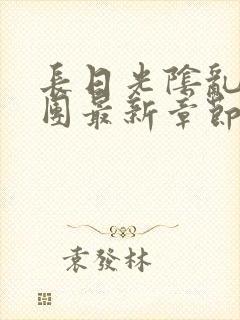 長日光陰亂
團最新章節
袁發林